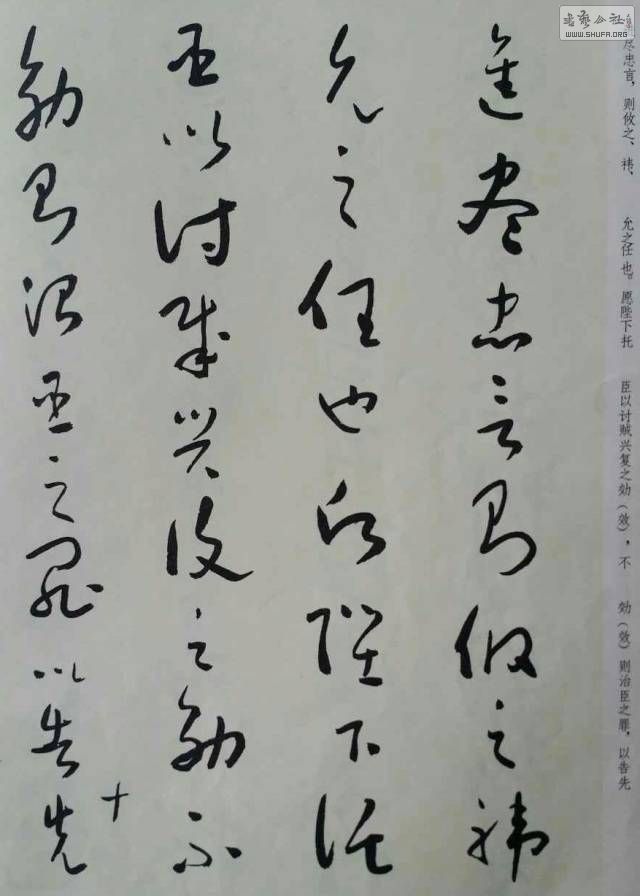 书艺公社
WWW.SHUFA.ORG
尽忠言，则攸之、祎、
允之任也。愿陛下托
臣以讨贼兴复之効（效），不
効（效）则治臣之罪，以告先
進盡忠言則攸之禕
允之任也願陛下託
臣以討賊興復之効不
効則治臣之罪以告先
十